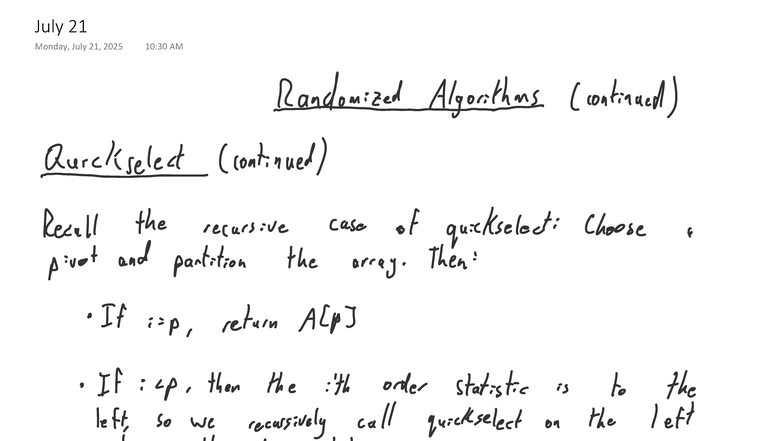 July 21
Monday, July 21, 2025 10:30 AM
Randomized Algorithms (continued)
Quickselect (continued)
Recall the recursive case of quickselect: Choose a
pivot and partition the array. Then:
• If i=p, return A[p]
• If i<p, then the i'th order statistic is to the
left, so we recursively call quickselect on the left